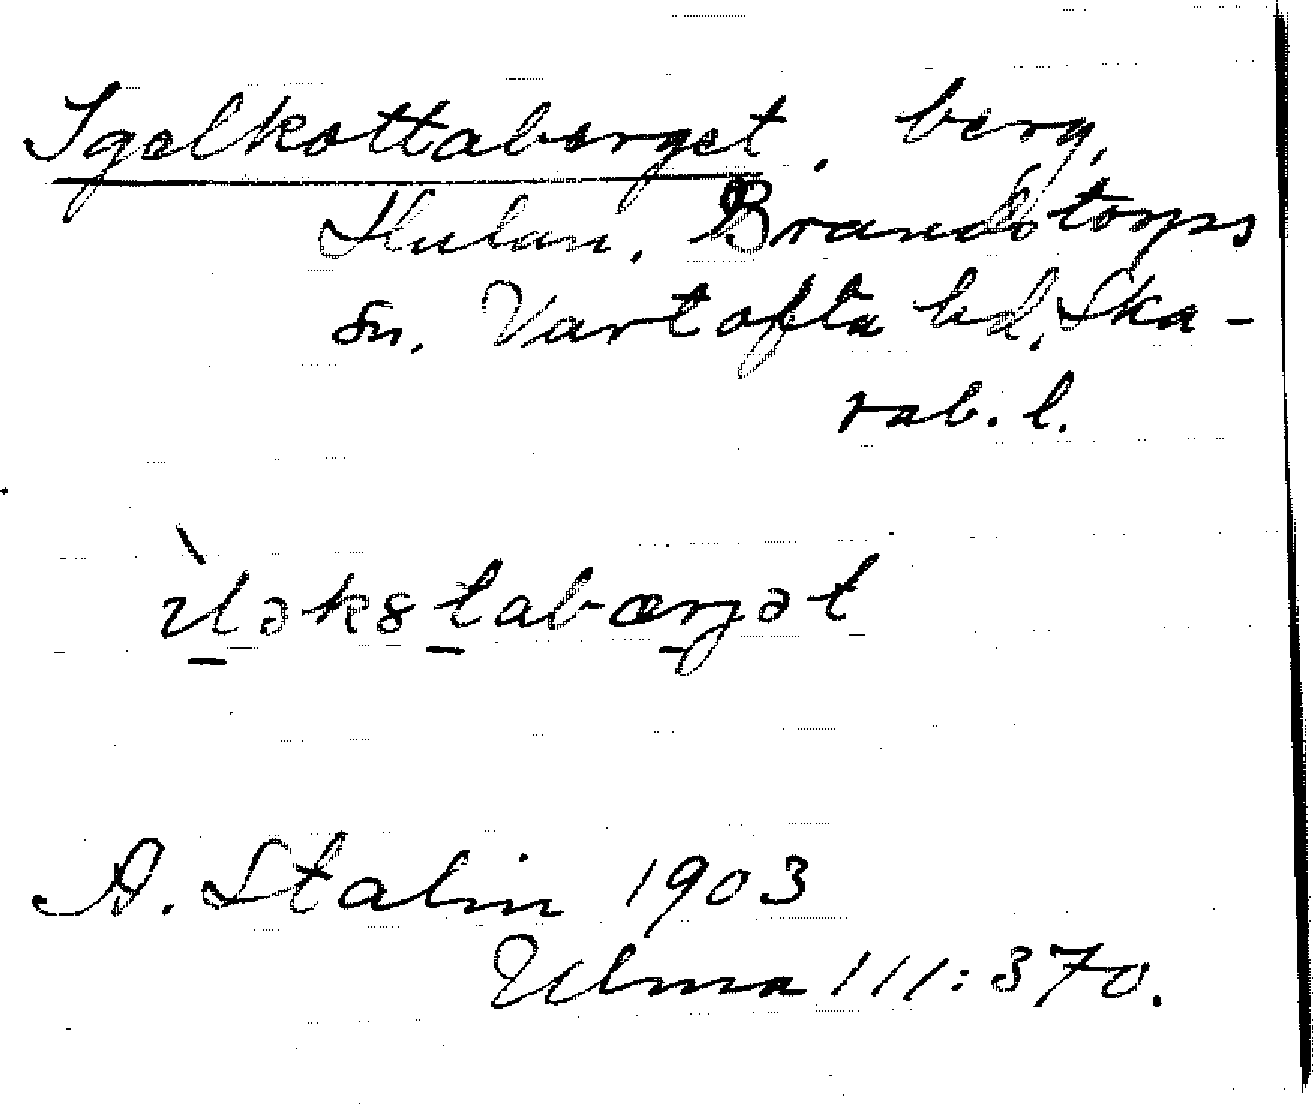 Igelkottaberget. berg,
Hulan. Brandstorps
sn. Vartofta hd. Ska-
rab. l.
A. Stalin 1903
Ulma 111:370.